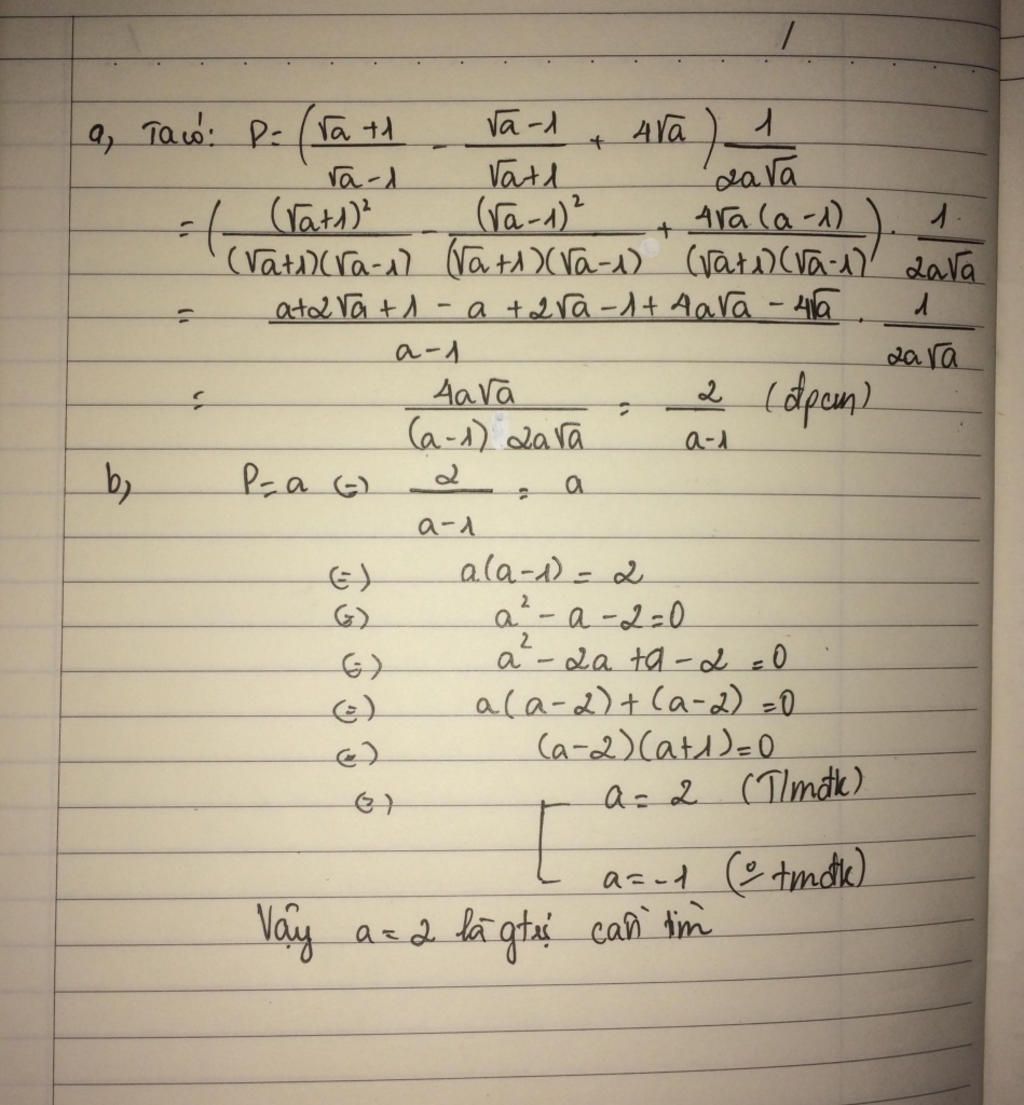 a, Ta có: P = ( (√a + 1)/(√a - 1) - (√a - 1)/(√a + 1) + 4√a ) 1/(2a√a)
= ( (√a+1)²/((√a+1)(√a-1)) - (√a-1)²/((√a+1)(√a-1)) + 4√a(a-1)/((√a+1)(√a-1)) ) . 1/(2a√a)
= (a+2√a+1 - a + 2√a - 1 + 4a√a - 4√a)/(a-1) . 1/(2a√a)
= 4a√a/((a-1) 2a√a) = 2/(a-1) (đpcm)
b, P = a (=) 2/(a-1) = a
(=) a(a-1) = 2
(=) a² - a - 2 = 0
(=) a² - 2a + a - 2 = 0
(=) a(a-2) + (a-2) = 0
(=) (a-2)(a+1) = 0
(=) [ a = 2 (T/mđk)
a = -1 (o tmđk)
Vậy a = 2 là gtrị cần tìm